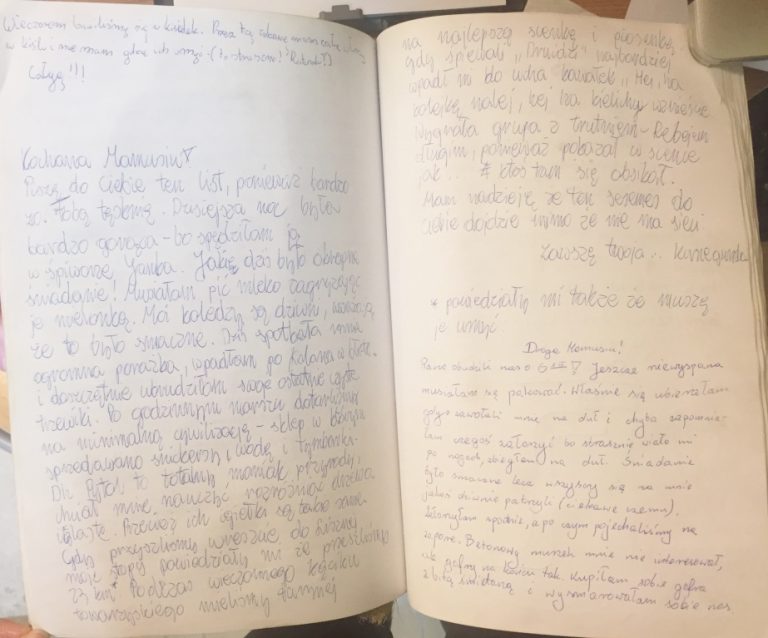 Wieczorem bawiliśmy się w kisielek. Przez tą zabawę mam całe włosy
w kiśl i nie mam gdzie ich umyć :-( to straszne!
Całuję!!!
Kochana Mamusiu
Piszę do Ciebie ten list, ponieważ bardzo
za Tobą tęsknię. Dzisiejsza noc była
bardzo gorąca - bo spędziłam ją
w śpiworze Janka. Jakież dziś było okropne
śniadanie! Musiałam pić mleko zagryzając
je mielonką. Moi koledzy są dziwni, uważają,
że to było smaczne. Dziś spotkała mnie
ogromna porażka, wpadłam po kolana w błoto,
i doszczętnie ubrudziłam swoje ostatnie czyste
trzewiki. Po godzinnym marszu dotarliśmy
na minimalną cywilizację - sklep w którym
sprzedawano snickersy, wodę i tymbarki.
Dh. to totalny maniak przyrody,
chciał mnie nauczyć rozróżniać drzewa
iglaste. Przecież ich igiełki są takie same.
Gdy przyszliśmy wreszcie do
moje stopy powiedziały mi że przeszliśmy
23 km* Podczas wieczornego kącika
towarzyskiego mieliśmy
na najlepszą scenkę i piosenkę,
gdy śpiewali "Druidzi" najbardziej
wpadł mi do ucha kawałek "Hej, na
kolejkę nalej, hej na kielichy wznieście.
Wygrała grupa z trutniem - Rebajem
długim, ponieważ pokazał w scence
jak... # ktoś tam się obsikał.
Mam nadzieję że ten sesemes do
ciebie dojdzie mimo że nie ma sieci
Zawszę twoja.. Kunegunda
* powiedziały mi także że muszę
je umyć.
Droga Mamusiu!
Rano obudzili nas o 6 Jeszcze niewyspana
musiałam się pakować. Właśnie się ubierałam
gdy zawołali mnie na dół i chyba zapomnia-
łam czegoś założyć bo strasznie wiało mi
po nogach, zbiegłam na dół. Śniadanie
było smaczne lecz wszyscy się na mnie
jakoś dziwnie patrzyli (ciekawe czemu).
Założyłam spodnie, a po czym pojechaliśmy na
zaporę. Betonowy murek mnie nie interesował,
ale gofry na końcu tak. Kupiłam sobie gofra
z bitą śmietaną i wysmarowałam sobie nos.